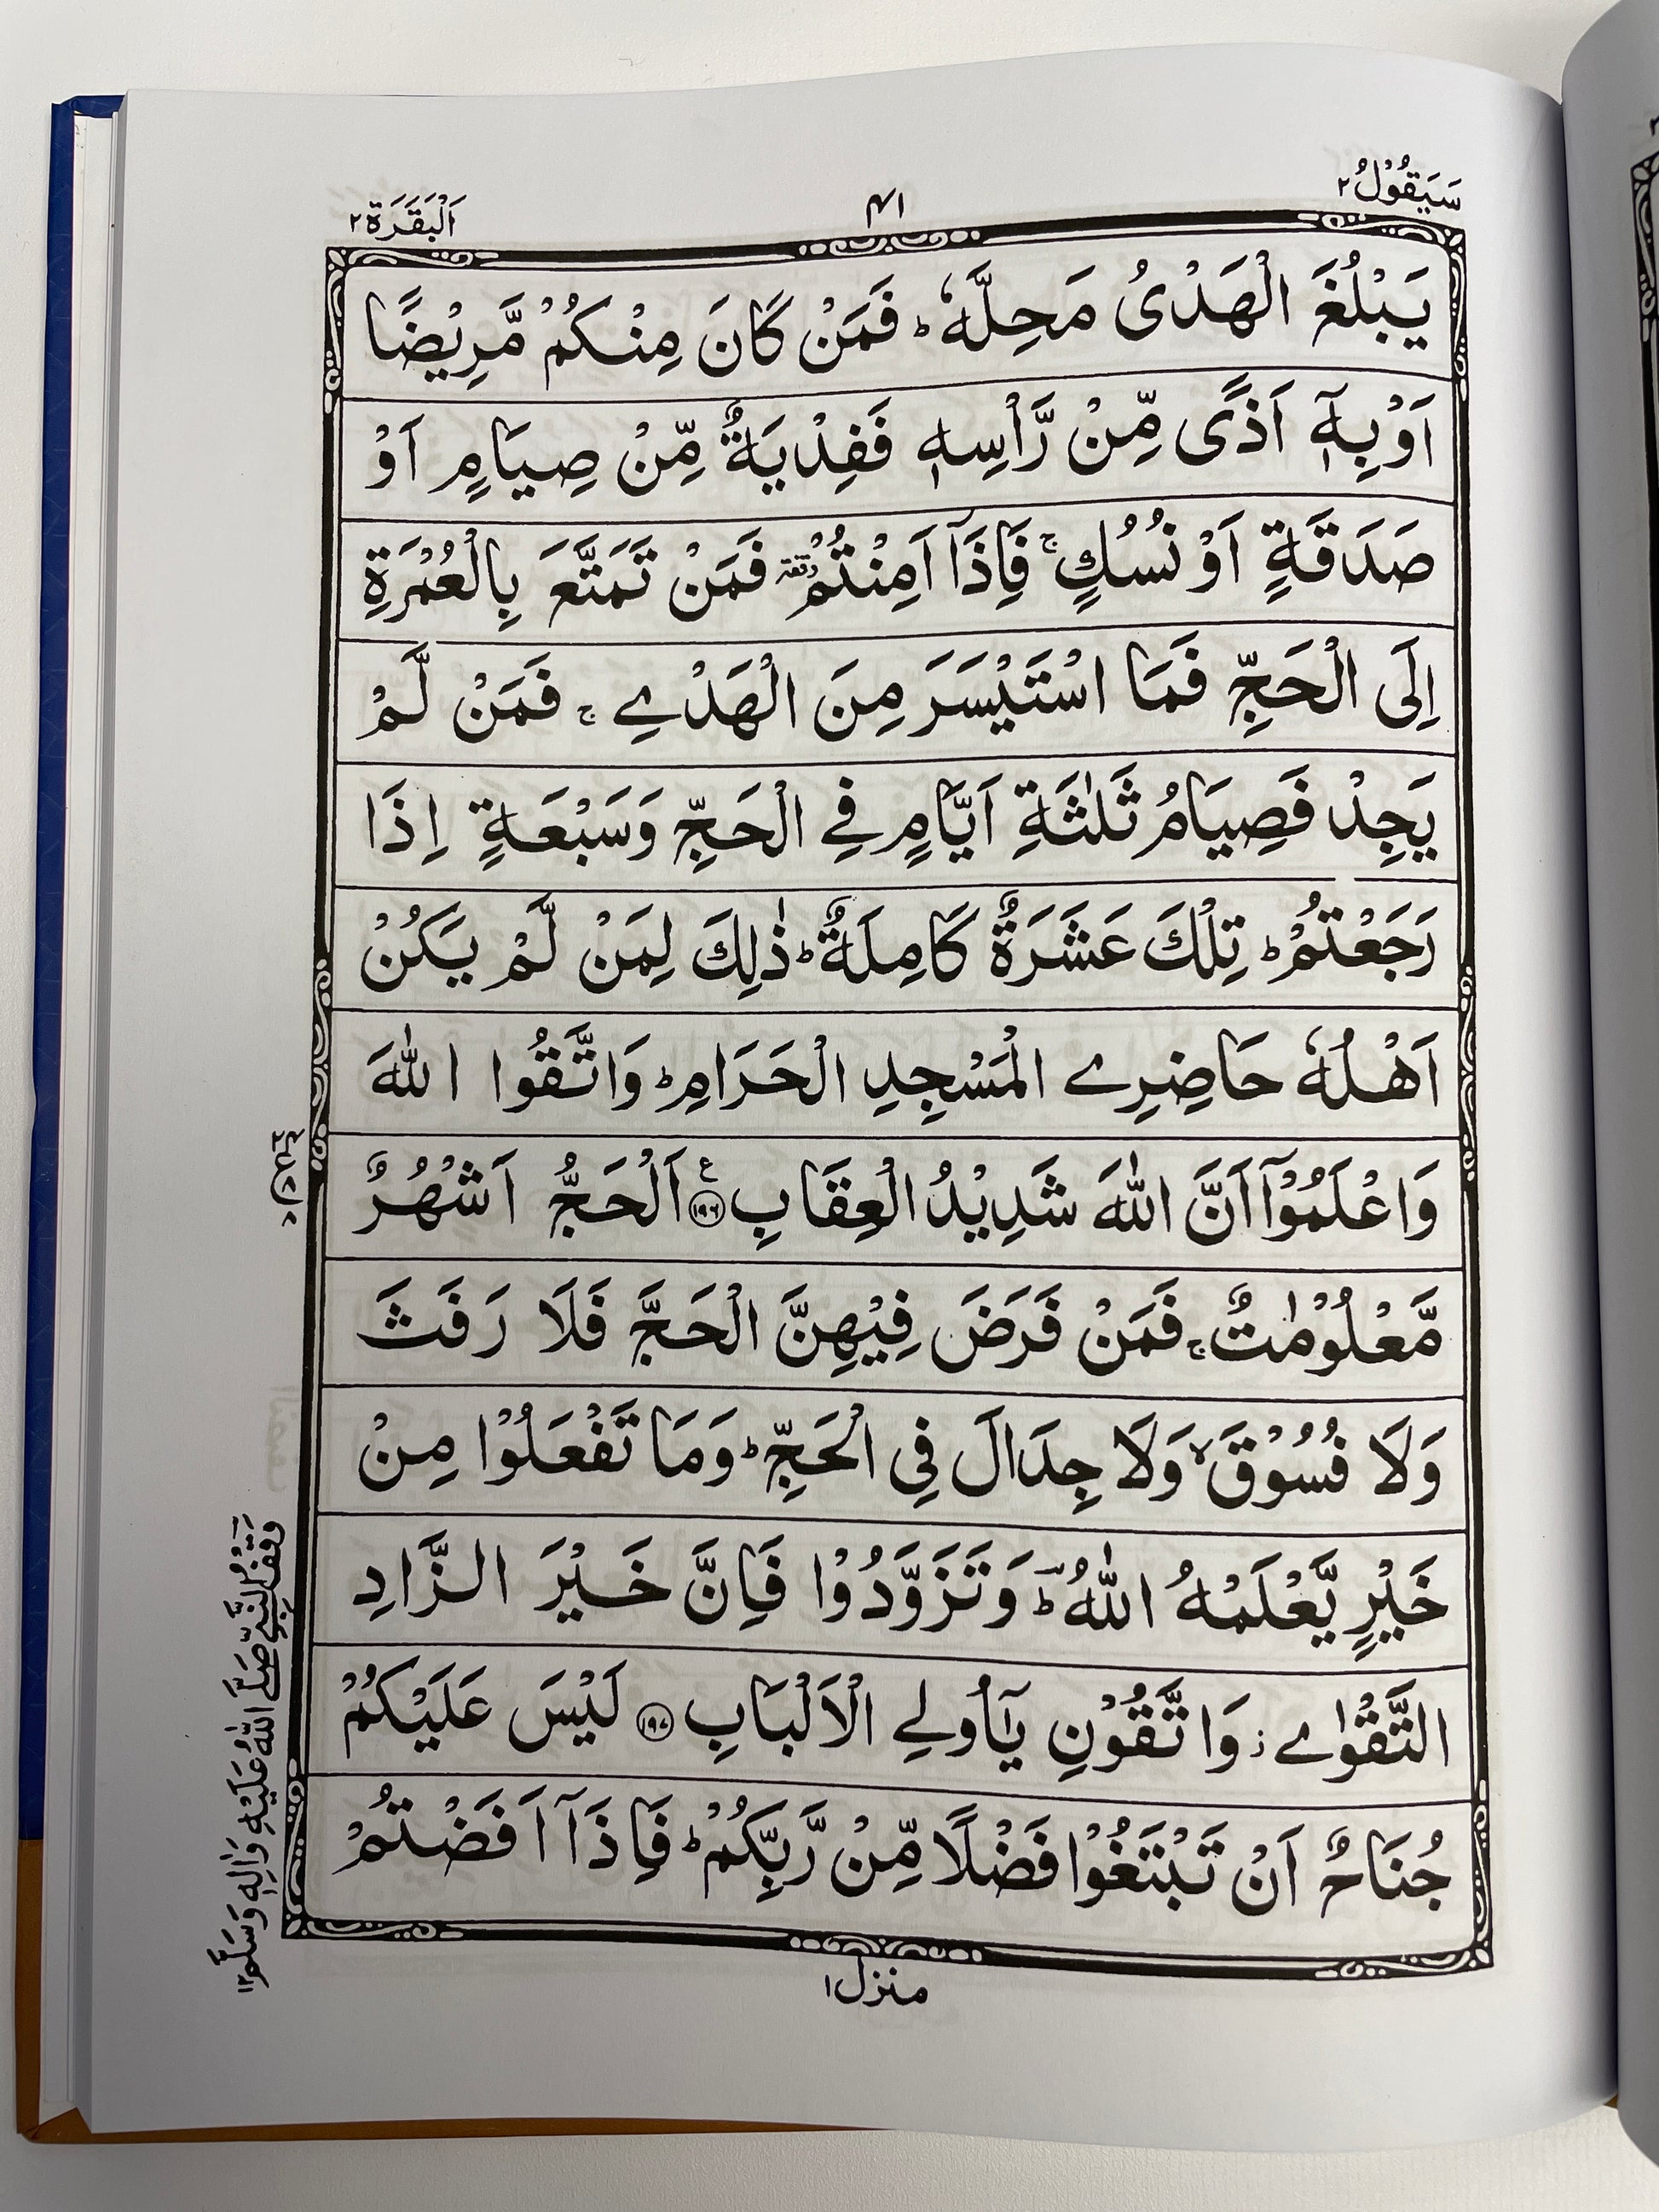 سَيَقُوْلُ ٢
٤١
اَلْبَقَرَة ٢
يَبْلُغَ الْهَدْىُ مَحِلَّهٗ ؕ فَمَنْ كَانَ مِنْكُمْ مَّرِيْضًا
اَوْ بِهٖۤ اَذًى مِّنْ رَّاْسِهٖ فَفِدْيَةٌ مِّنْ صِيَامٍ اَوْ
صَدَقَةٍ اَوْ نُسُكٍ ۚ فَاِذَاۤ اَمِنْتُمْ وقفة فَمَنْ تَمَتَّعَ بِالْعُمْرَةِ
اِلَى الْحَجِّ فَمَا اسْتَيْسَرَ مِنَ الْهَدْىِ ۚ فَمَنْ لَّمْ
يَجِدْ فَصِيَامُ ثَلٰثَةِ اَيَّامٍ فِى الْحَجِّ وَسَبْعَةٍ اِذَا
رَجَعْتُمْ ؕ تِلْكَ عَشَرَةٌ كَامِلَةٌ ؕ ذٰلِكَ لِمَنْ لَّمْ يَكُنْ
اَهْلُهٗ حَاضِرِى الْمَسْجِدِ الْحَرَامِ ؕ وَاتَّقُوا اللّٰهَ
وَاعْلَمُوْۤا اَنَّ اللّٰهَ شَدِيْدُ الْعِقَابِ ع ١٩٦ اَلْحَجُّ اَشْهُرٌ
مَّعْلُوْمٰتٌ ۚ فَمَنْ فَرَضَ فِيْهِنَّ الْحَجَّ فَلَا رَفَثَ
وَلَا فُسُوْقَ ۙ وَلَا جِدَالَ فِى الْحَجِّ ؕ وَمَا تَفْعَلُوْا مِنْ
خَيْرٍ يَّعْلَمْهُ اللّٰهُ ؕ وَتَزَوَّدُوْا فَاِنَّ خَيْرَ الزَّادِ
التَّقْوٰى ز وَاتَّقُوْنِ يٰۤاُولِى الْاَلْبَابِ ١٩٧ لَيْسَ عَلَيْكُمْ
جُنَاحٌ اَنْ تَبْتَغُوْا فَضْلًا مِّنْ رَّبِّكُمْ ؕ فَاِذَاۤ اَفَضْتُمْ
وَقْفُ النَّبِيِّ صَلَّى اللّٰهُ عَلَيْهِ وَاٰلِهٖ وَسَلَّمَ ١٢
منزل ١